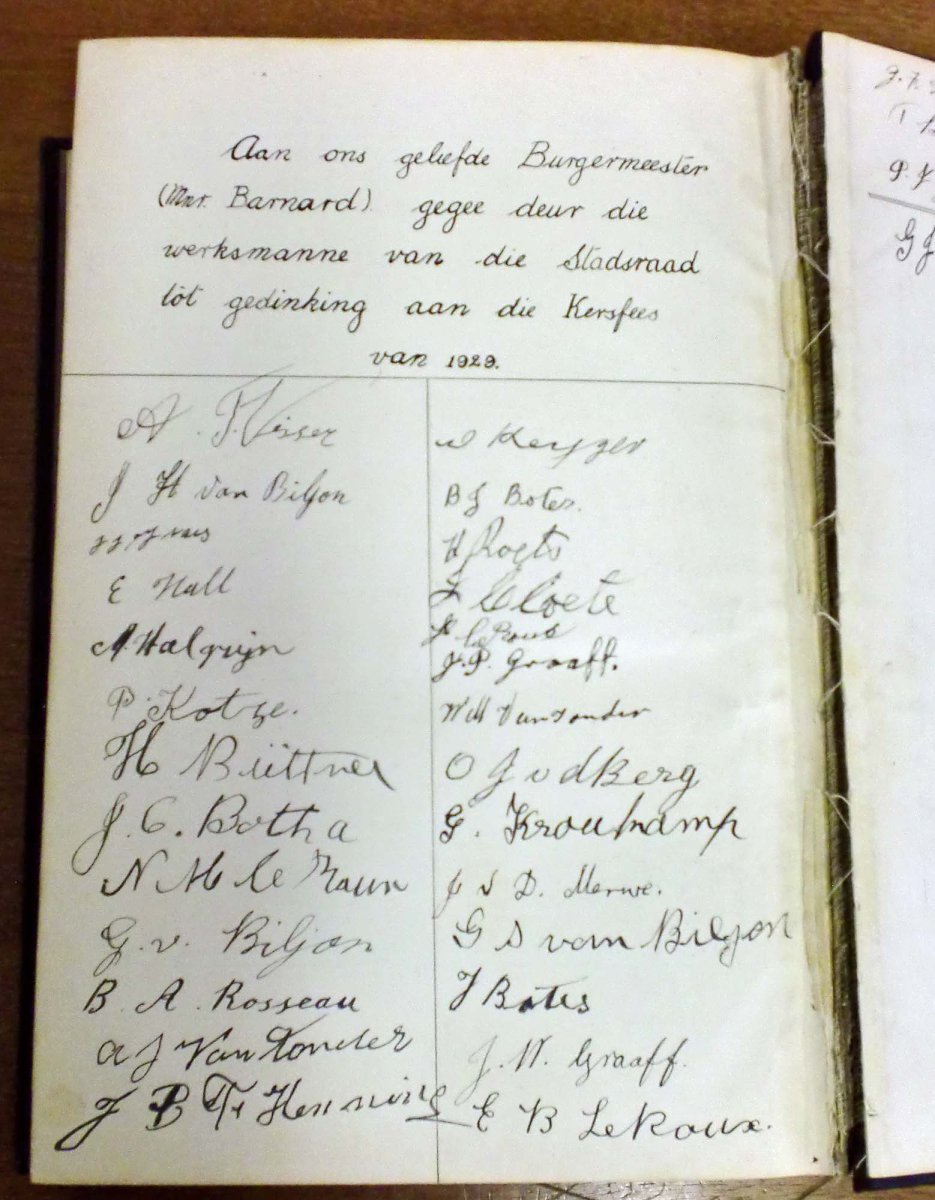 Aan ons geliefde Burgermeester
(Mnr. Barnard) gegee deur die
werksmanne van die Stadsraad
tot gedinking aan die Kersfees
van 1929.
A. P. Visser
J H van Biljon
E Hall
A. Walquyn
P. Kotze.
H Büttner
J. C. Botha
N M le
G. v. Biljon
B. A. Rosseau
A J Van Tonder
J P T Henning
Keyzer
B J Botes.
H
J Cloete
le Roux
J. P. Graaff.
W M Van Tonder
O J v d Berg
G. Kroukamp
J v D. Merwe.
G S van Biljon
J Botes
J. W. Graaff.
E B Le Roux.
G J